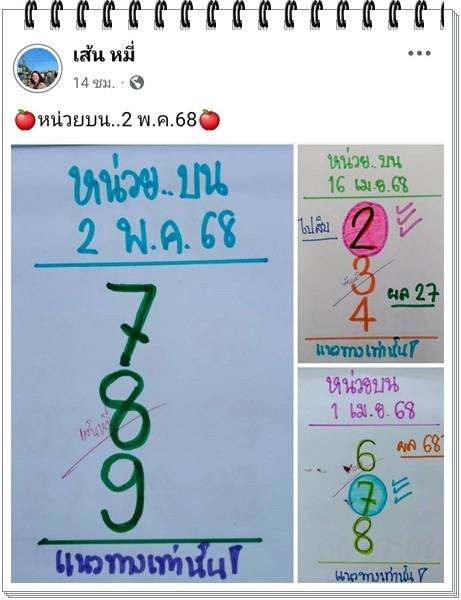 เส้น หมี่
14 ชม.
🍎หน่วยบน..2 พ.ค.68🍎
หน่วย..บน
2 พ.ค. 68
7
8
เส้นหมี่
9
แนวทางเท่านั้น!
หน่วย..บน
16 เม.ย.68
ไปสิบ
2
3
4
ผล 27
แนวทางเท่านั้น!
หน่วยบน
1 เม.ย. 68
ผล 68
6
7
8
แนวทางเท่านั้น!